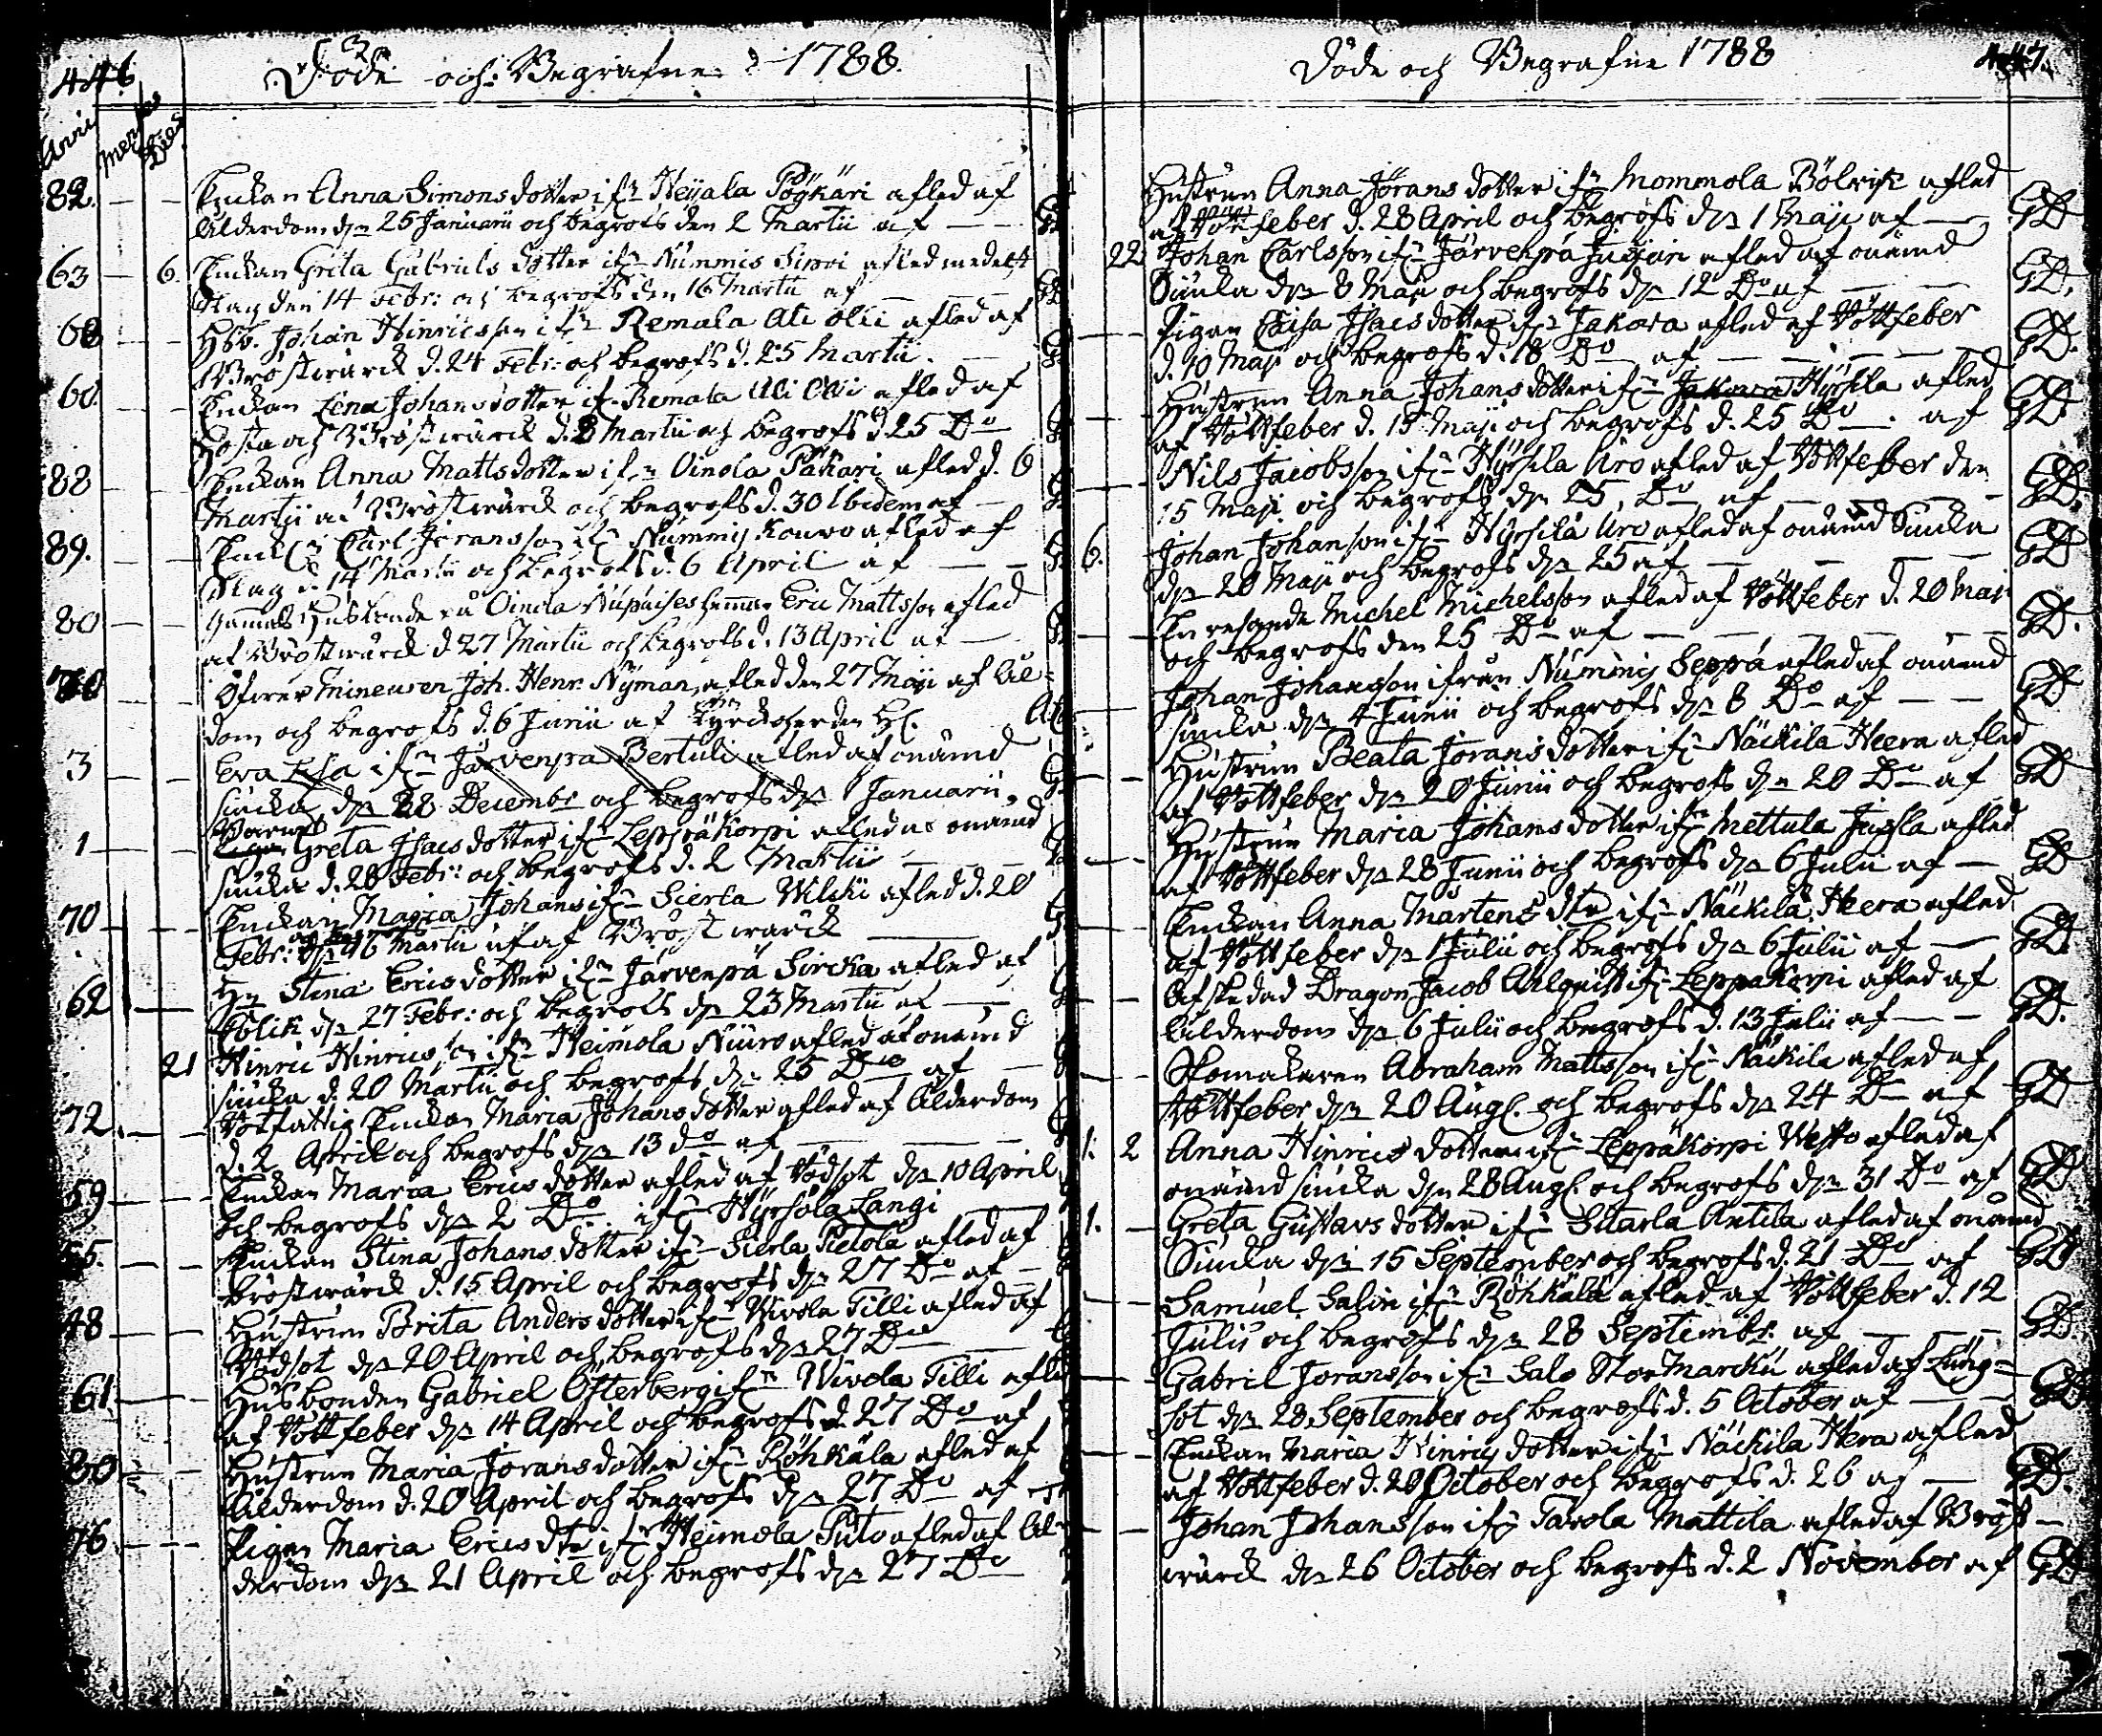 446
Döde och Begrafne 1788.
Anni Menses Dies
82. Enckan Anna Simonsdotter ifrn Heijala Pöykäri afled af
Ålderdom dn 25 Januarii och begrofs den 2 Martii af
63 6. Enckan Greta Gabriels dotter ifrn Nummis Simoi afled medelst
Slag den 14 Febr: och begrofs den 16 Martii af
68 Hsb. Johan Hinricsson ifrn Remala Ali Olli afled af
Bröstwärck d. 24 Febr: och begrofs d. 25 Martii.
60. Enckan Lena Johansdotter ifr. Remala Ali Olli afled af
Hosta och Bröstwärck d. 8 Martii och begrofs d. 25 Do
88 Enckan Anna Mattsdotter ifrn Oinola Päkäri afled d. 6
Martii af Bröstwärck och begrofs d. 30 Ibidem af
89. Carl Jöransson ifrn Nummis Kouvo afled af
Slag d. 14 Martii och begrofs d. 6 April af
80 Gammal Husbonde på Oinola Eric Mattsson afled
af Bröstwärck d 27 Martii och begrofs d. 13 April af
Joh. Henr. Nyman, afled den 27 Maji af Ål-
dom och begrofs d. 6 Junii af Kyrckoherden
3 Eva Lisa ifrn Järvenpä Bertuli afled af onämd
siucka dn 28 Decembr och begrofs dn 1 Januarii.
1 Barnet Greta Isacsdotter ifrn Leppäkorpi afled af onämd
siucka d. 28 Febr: och begrofs d. 2 Martii
70 Enckan Maria Johans ifrn Sierla Wilcki afled d. 20
Febr: dn 16 Martii af Bröst wärck
62 Stina Ericsdotter ifrn Järvenpä Sircka afled af
Colik dn 27 Febr: och begrofs dn 23 Martii af
21 Hinric Hinricsson ifrn Heimola Niuro afled af onämd
siucka d. 20 Martii och begrofs dn 25 Do af
72. Enckan Maria Johansdotter afled af Ålderdom
d. 2 April och begrofs dn 13 do af
59 Enckan Maria Ericsdotter afled af Wådsot dn 10 April
och begrofs dn 2 Do ifrn Hyrsölä Langi
55. Enckan Stina Johansdotter ifrn Sierla Pietola afled af
Bröstwärck d. 15 April och begrofs dn 27 Do af
48 Hustrun Brita Andersdotter ifrn Wivola Tilli afled af
Wådsot dn 20 April och begrofs dn 27 Do
61. Husbonden Gabriel Österberg ifrn Wivola Tilli afled
af Röttfeber dn 14 April och begrofs d. 27 Do af
80 Hustrun Maria Jöransdotter ifrn Röhkälä afled af
Ålderdom d. 20 April och begrofs dn 27 Do af
76 Pigan Maria Erics dtr ifrn Heimola Puto afled af Ål-
derdom dn 21 April och begrofs dn 27 Do
Döde och Begrafne 1788
447.
Hustrun Anna Jöransdotter ifrn Mommola afled
af Röttfeber d. 28 April och begrofs dn 1 Maji af GD
22 Johan Carlsson ifrn Järvenpä afled af onämd
Siucka dn 8 Maji och begrofs dn 12 Do af GD.
Pigan Caisa Isacsdotter ifrn Jakara afled af Röttfeber
d. 10 Maji och begrofs d. 18 Do af GD.
Hustrun Anna Johansdotter ifrn Jakara Hyrsilä afled
af Röttfeber d. 15 Maji och begrofs d. 25 Do af GD.
Nils Jacobsson ifrn Hyrsilä Uro afled af Röttfeber den
15 Maji och begrofs dn 25. Do af GD.
6. Johan Johansson ifrn Hyrsilä Uro afled af onämd Siucka
dn 20 Maji och begrofs dn 25 af GD
En resande Michel Michelsson afled af Röttfeber d. 20 Maji
och begrofs den 25 Do af GD.
Johan Johansson ifrån Nummis Seppä afled af onämd
siucka dn 4 Junii och begrofs dn 8 Do af GD
Hustrun Beata Jöransdotter ifrn Näckilä Heera afled
af Röttfeber dn 20 Junii och begrofs dn 20 Do af GD
Hustrun Maria Johansdotter ifrn Mettula Jusla afled
af Röttfeber dn 28 Junii och begrofs dn 6 Julii af GD
Enckan Anna Mårtens dtr ifrn Näckilä Heera afled
af Röttfeber dn 1 Julii och begrofs dn 6 Julii af GD.
Afskedad Dragon Jacob Ahlquist ifrn Leppäkorpi afled af
Ålderdom dn 6 Julii och begrofs d. 13 Julii af GD.
Skomakaren Abraham Mattsson ifrn Näckilä afled af
Röttfeber dn 20 Aug. och begrofs dn 24 Do af GD
1. 2 Anna Hinrics dotter ifrn Leppäkorpi Westo afled af
onämd siucka dn 28 Aug. och begrofs dn 31 Do af GD
1. Greta Gustavs dotter ifrn Sitarla Antila afled af onämd
Siucka dn 15 September och begrofs d. 21 Do af GD
Samuel Salin ifrn Röhkälä afled af Röttfeber d. 12
Julii och begrofs dn 28 Septembr. af GD.
Gabril Jöransson ifrn Salo Stor Marckú afled af Lung-
sot dn 28 September och begrofs d. 5 October af GD
Enckan Maria Hinrics dotter ifrn Näckilä Hera afled
af Röttfeber d. 20 October och begrofs d. 26 af GD.
Johan Johansson ifrn Tavola Mattila afled af Bröst-
wärck dn 26 October och begrofs d. 2 November af GD